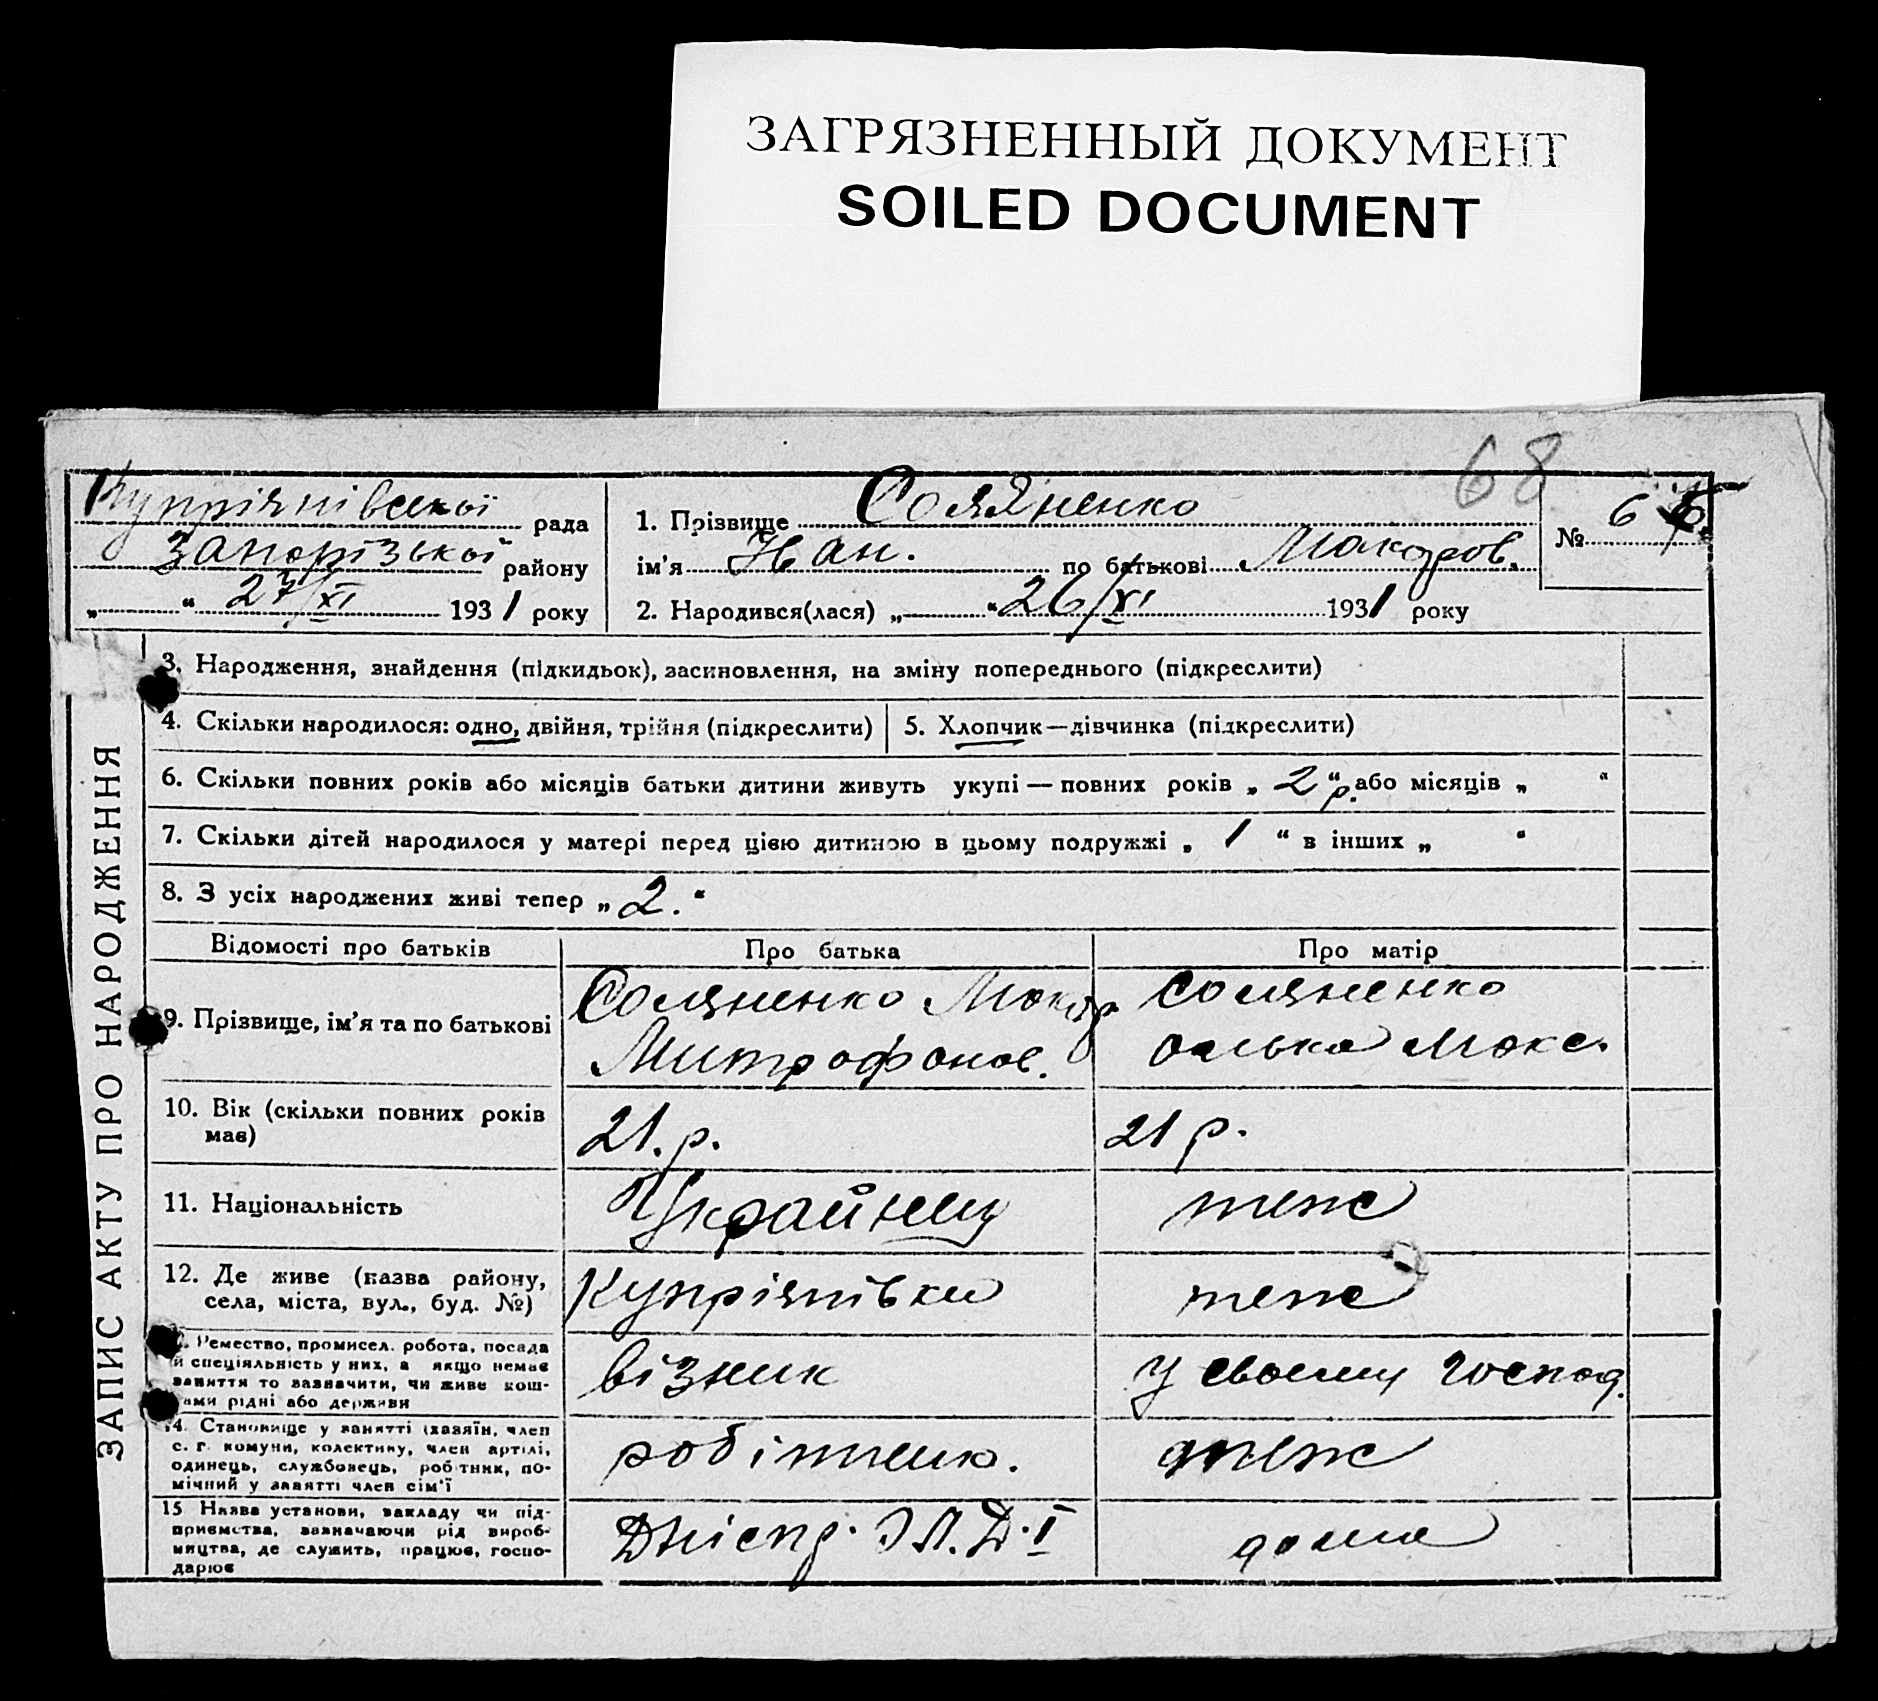 ЗАГРЯЗНЕННЫЙ ДОКУМЕНТ
SOILED DOCUMENT
68
Купріянівської рада
Запорізької району
„ “ 27/XI 1931 року
1. Прізвище Соляненко
ім'я Іван. по батькові Макаров.
2. Народився(лася) „ “ 26/XI 1931 року
№ 6
ЗАПИС АКТУ ПРО НАРОДЖЕННЯ
3. Народження, знайдення (підкидьок), засиновлення, на зміну попереднього (підкреслити)
4. Скільки народилося: одно, двійня, трійня (підкреслити)
5. Хлопчик—дівчинка (підкреслити)
6. Скільки повних років або місяців батьки дитини живуть укупі — повних років „ 2 р. “ або місяців „ “
7. Скільки дітей народилося у матері перед цією дитиною в цьому подружжі „ 1 “ в інших „ “
8. З усіх народжених живі тепер „ 2. “
Відомості про батьків
Про батька
Про матір
9. Прізвище, ім'я та по батькові
Соляненко Макар
Митрофанов.
Соляненко
Олька Макс.
10. Вік (скільки повних років
має)
21. р.
21 р.
11. Національність
Українец
теж
12. Де живе (назва району,
села, міста, вул., буд. №)
Купріянівка
теж
Ремество, промисел, робота, посада
й спеціяльність у них, а якщо немає
заняття то зазначити, чи живе кош-
тами рідні або держави
візник
у своему господ.
14. Становище у занятті (хазяїн, член
с. г. комуни, колективу, член артілі,
одинець, службовець, робітник, по-
мічний у занятті член сім'ї
робітник.
теж
15 Назва установи, закладу чи під-
приємства, зазначаючи рід вироб-
ництва, де служить, працює, госпо-
дарює
дома